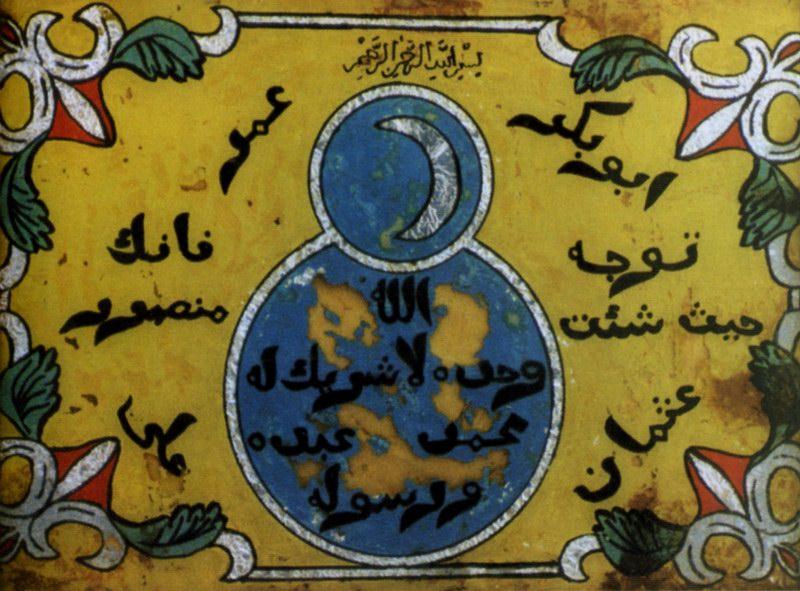 بسم الله الرحمن الرحيم
ابو بكر
عمر
توجه
حيث شئت
فانك
منصور
الله
وحده لا شريك له
محمد عبده
ورسوله
عثمان